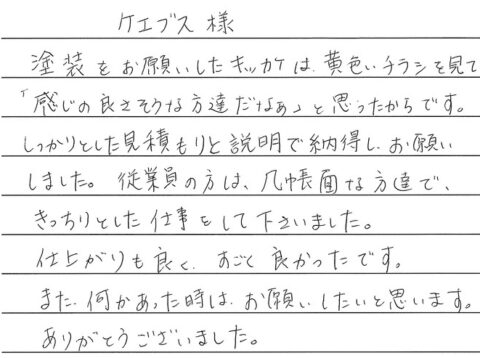 ケエブス 様
塗装をお願いしたキッカケは、黄色いチラシを見て
「感じの良さそうな方達だなぁ」と思ったからです。
しっかりとした見積もりと説明で納得し、お願い
しました。従業員の方は、几帳面な方達で、
きっちりとした仕事をして下さいました。
仕上がりも良く、すごく良かったです。
また、何かあった時は、お願いしたいと思います。
ありがとうございました。